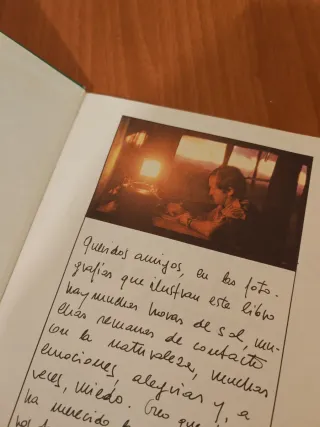 Queridos amigos, en las foto-
grafías que ilustran este libro
hay muchas horas de sol, mu-
chas semanas de contacto
con la naturaleza, muchas
emociones, alegrías y, a
veces, miedo. Creo que
ha merecido